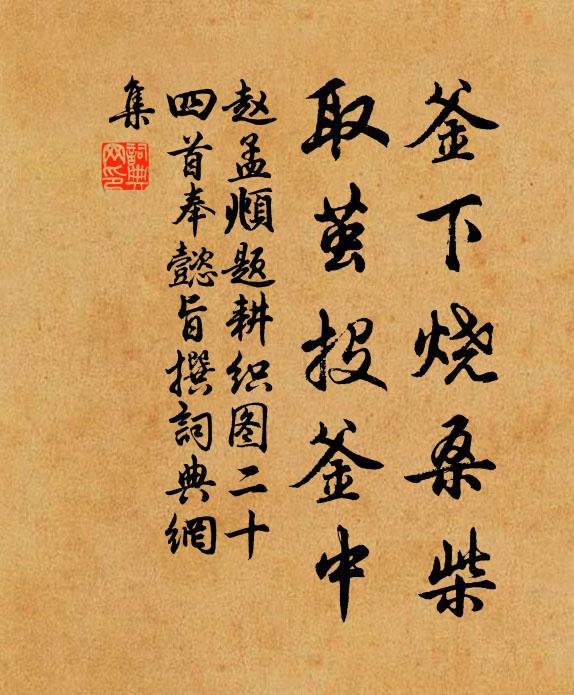 釜下烧桑柴
取茧投釜中
赵孟頫题耕织图二十
四首奉懿旨撰詞典網
集
詞典
网印